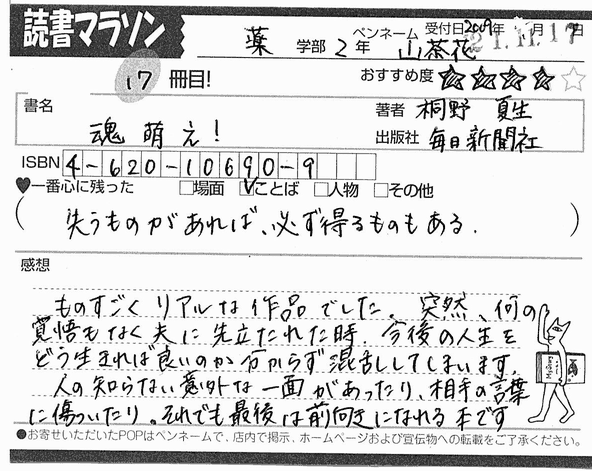 読書マラソン
薬 学部 2年 ペンネーム 山茶花 受付日2009年 月 日
21.11.17
17 冊目! おすすめ度 ★★★★☆
書名 魂萌え!
著者 桐野 夏生
出版社 毎日新聞社
ISBN 4-620-10690-9
♥一番心に残った □場面 ☑ことば □人物 □その他
(失うものがあれば、必ず得るものもある.)
感想
ものすごくリアルな作品でした。突然、何の
覚悟もなく夫に先立たれた時、今後の人生を
どう生きれば良いのか分からず混乱してしまいます.
人の知らない意外な一面があったり、相手の言葉
に傷ついたり。それでも最後は前向きになれる本です
●お寄せいただいたPOPはペンネームで、店内で掲示、ホームページおよび宣伝物への転載をご了承ください。